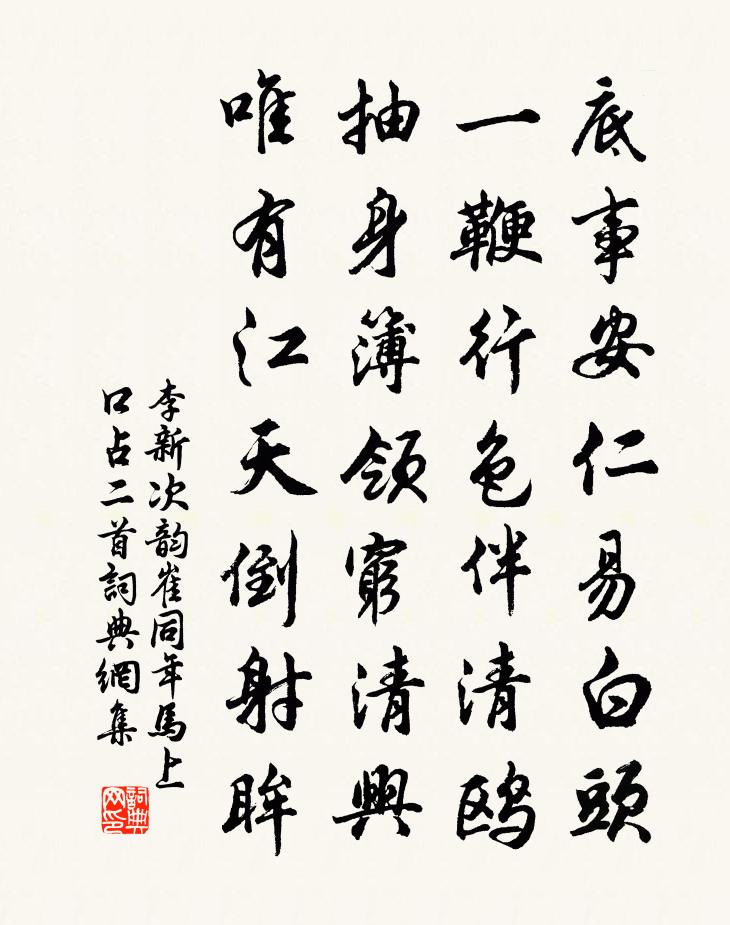 底事安仁易白頭
一鞭行色伴清鷗
抽身簿領窮清興
唯有江天倒射眸
李新次韵崔同年馬上
口占二首詞典網集
詞典网印